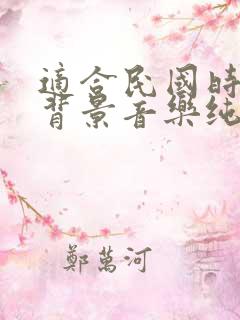 適合民國時
背景音樂純
鄭萬河